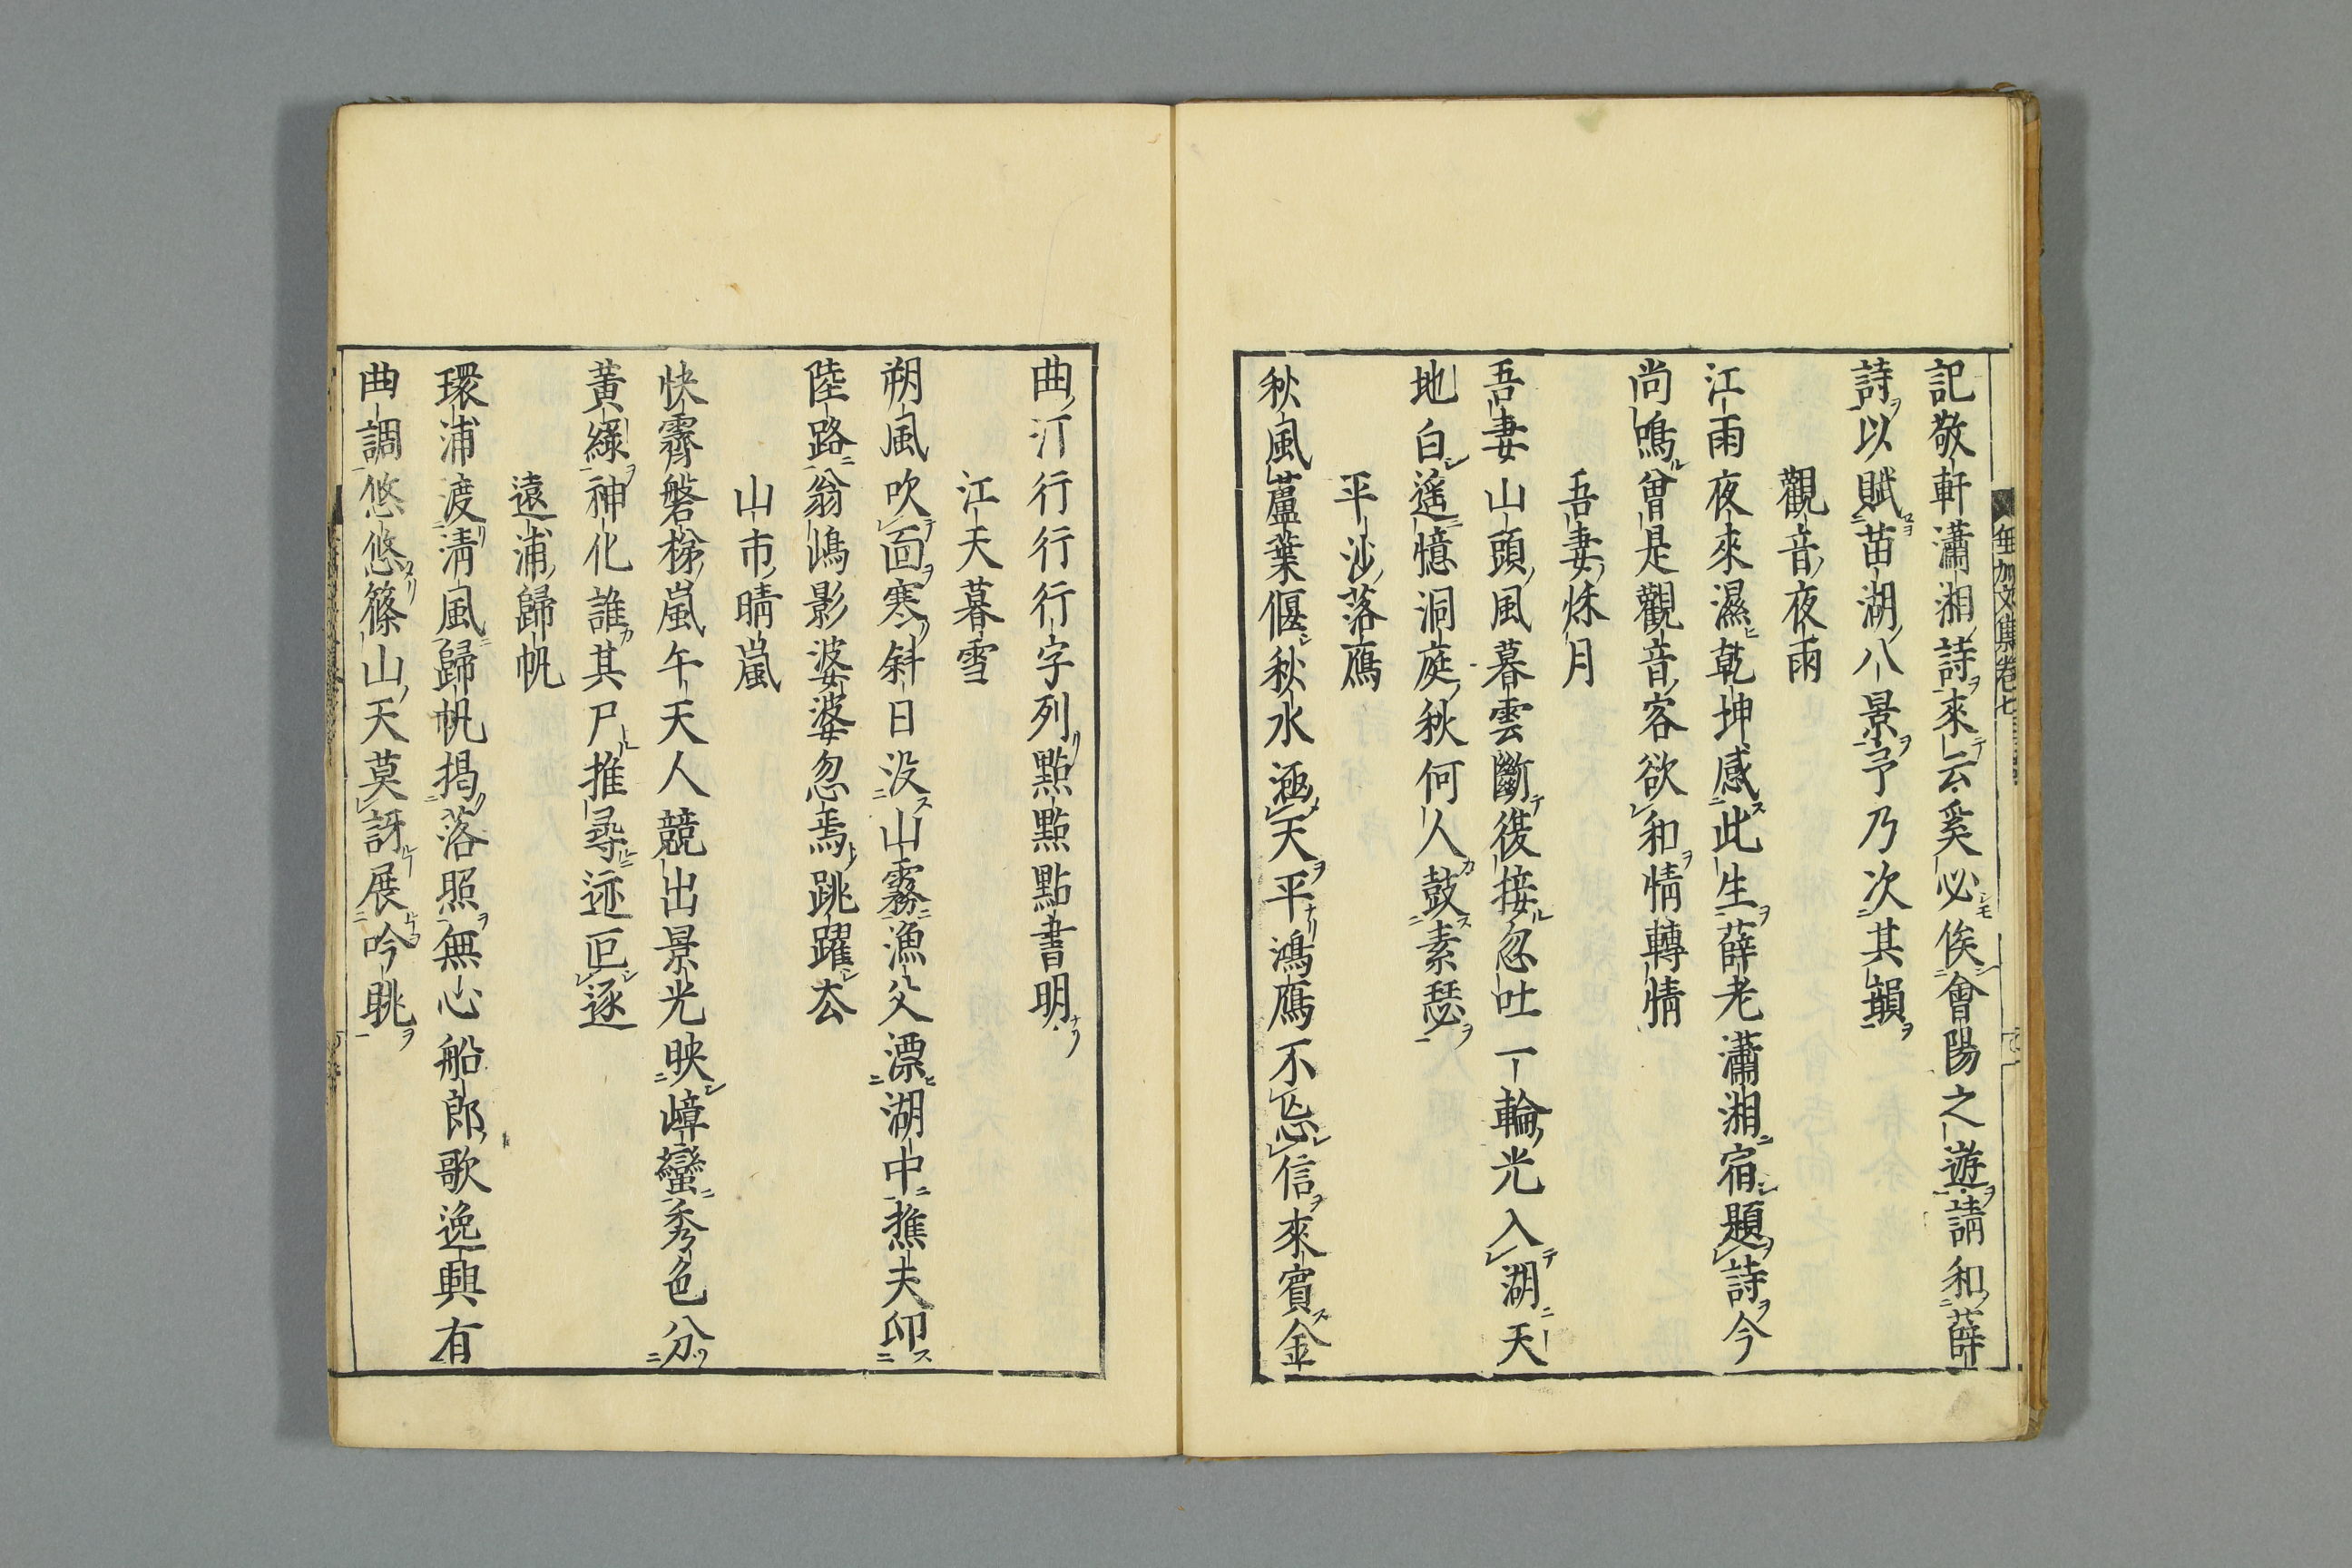 記敬軒瀟湘詩來云奚必俟會陽之遊請和薛
詩以賦苗湖八景予乃次其韻
觀音夜雨
江雨夜來濕乾坤感此生薛老瀟湘宿題詩今
尚鳴曾是觀音客欲和情轉情
吾妻秌月
吾妻山頭風暮雲斷復接忽吐一輪光入湖天
地白遙憶洞庭秋何人鼓素瑟
平沙落鴈
秋風蘆葉偃秋水涵天平鴻鴈不忘信來賓金
曲汀行行行字列點點點書明
江天暮雪
朔風吹面寒斜日没山霧漁父漂湖中樵夫卬
陸路翁嶋影婆婆忽焉跳躍厺
山市晴嵐
快霽磐梯嵐午天人競出景光映嶂蠻秀色分
黃綠神化誰其尸推尋迹叵逐
遠浦歸帆
環浦渡淸風歸帆揭落照無心船郎歌逸興有
曲調悠悠篠山天莫訝展吟眺
卷七